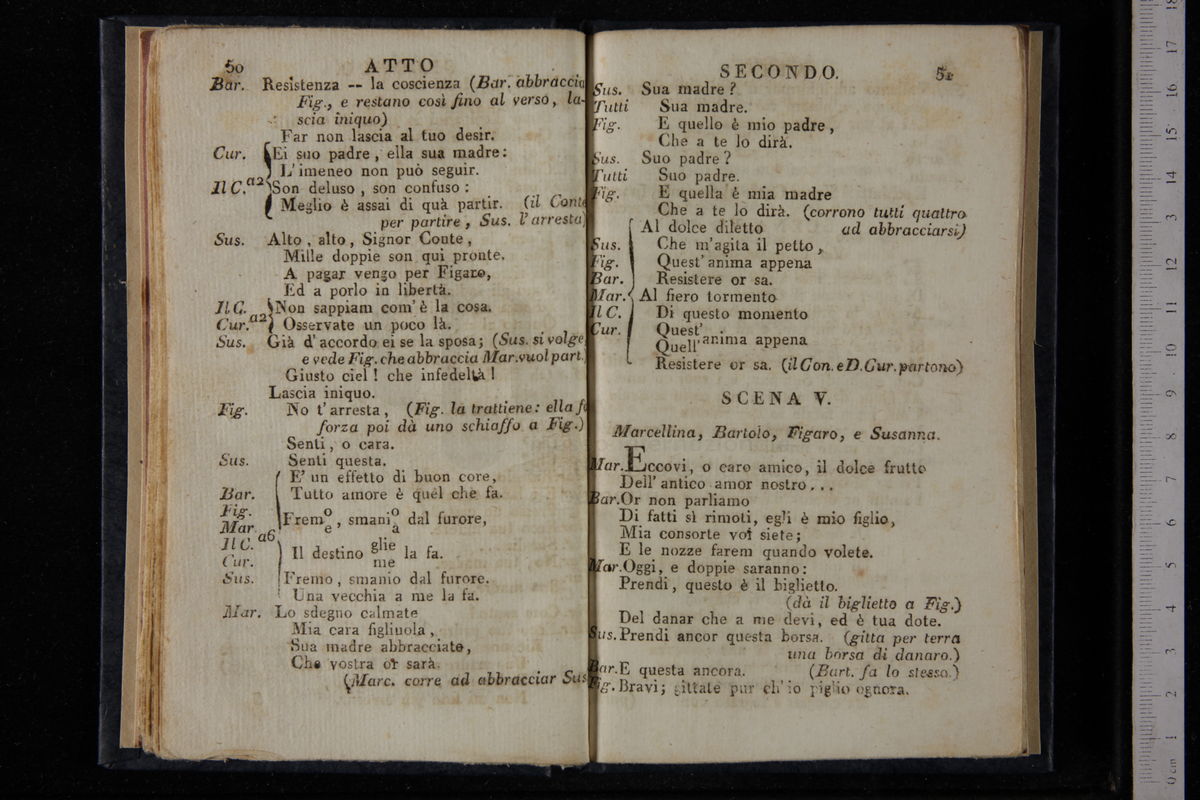 50 ATTO
Bar. Resistenza -- la coscienza (Bar. abbraccia
Fig., e restano così fino al verso, la-
scia iniquo)
Far non lascia al tuo desir.
Cur. Ei suo padre, ella sua madre:
L'imeneo non può seguir.
Il C. a2 Son deluso, son confuso:
Meglio è assai di quà partir. (il Conte
per partire, Sus. l'arresta)
Sus. Alto, alto, Signor Conte,
Mille doppie son qui pronte.
A pagar vengo per Figaro,
Ed a porlo in libertà.
Il C. Non sappiam com'è la cosa.
Cur. a2 Osservate un poco là.
Sus. Già d'accordo ei se la sposa; (Sus. si volge
e vede Fig. che abbraccia Mar. vuol part.
Giusto ciel! che infedeltà!
Lascia iniquo.
Fig. No t'arresta, (Fig. la trattiene: ella fa
forza poi dà uno schiaffo a Fig.)
Senti, o cara.
Sus. Senti questa.
E' un effetto di buon core,
Bar. Tutto amore è quel che fa.
Fig. Fremo, smanio dal furore,
Mar. e a
Il C. a6 Il destino glie la fa.
Cur. me
Sus. Fremo, smanio dal furore.
Una vecchia a me la fa.
Mar. Lo sdegno calmate
Mia cara figliuola,
Sua madre abbracciate,
Che vostra or sarà.
(Marc. corre ad abbracciar Sus
SECONDO. 51
Sus. Sua madre?
Tutti Sua madre.
Fig. E quello è mio padre,
Che a te lo dirà.
Sus. Suo padre?
Tutti Suo padre.
Fig. E quella è mia madre
Che a te lo dirà. (corrono tutti quattro
Al dolce diletto ad abbracciarsi)
Sus. Che m'agita il petto,
Fig. Quest'anima appena
Bar. Resistere or sa.
Mar. Al fiero tormento
Il C. Di questo momento
Cur. Quest'
Quell' anima appena
Resistere or sa. (il Con. e D. Cur. partono)
SCENA V.
Marcellina, Bartolo, Figaro, e Susanna.
Mar. Eccovi, o caro amico, il dolce frutto
Dell'antico amor nostro...
Bar. Or non parliamo
Di fatti sì rimoti, egli è mio figlio,
Mia consorte voi siete;
E le nozze farem quando volete.
Mar. Oggi, e doppie saranno:
Prendi, questo è il biglietto.
(dà il biglietto a Fig.)
Del danar che a me devi, ed è tua dote.
Sus. Prendi ancor questa borsa. (gitta per terra
una borsa di danaro.)
Bar. E questa ancora. (Bart. fa lo stesso.)
Fig. Bravi; gittate pur ch'io piglio ognora.
0 cm 1 2 3 4 5 6 7 8 9 10 11 12 13 14 15 16 17 18